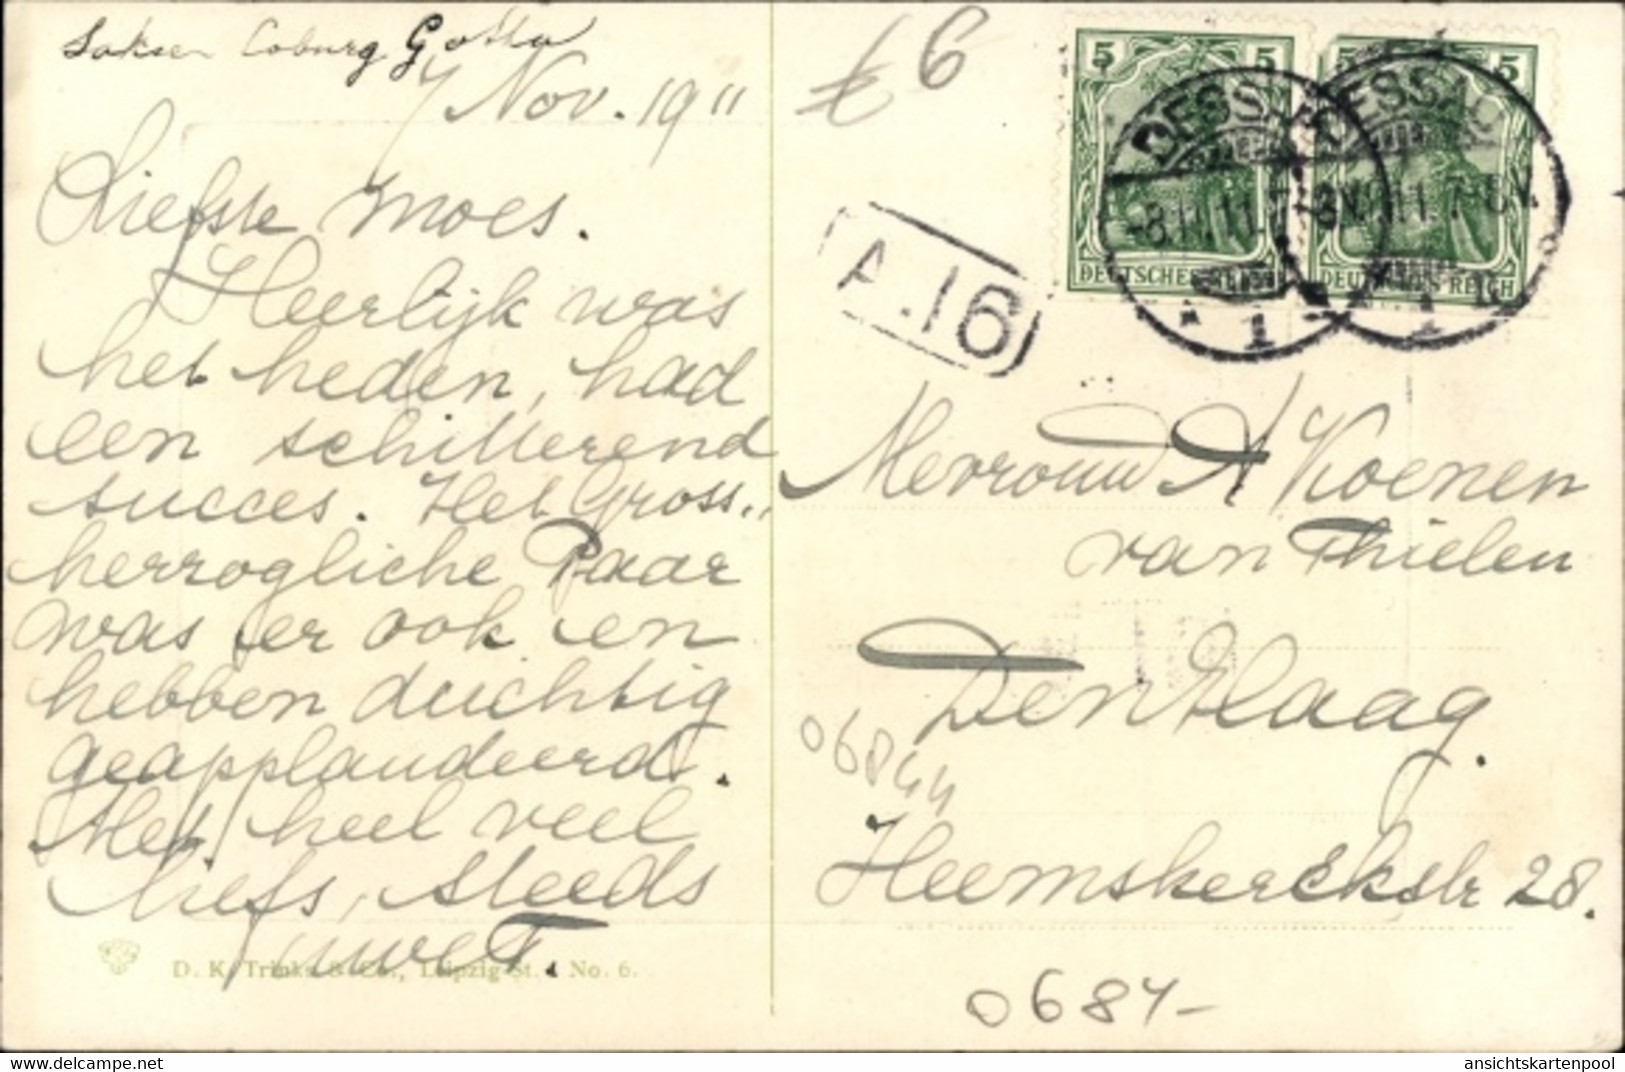 Saksen Coburg Gotha
7 Nov. 1911
Liefste Moes.
Heerlijk was
het heden, had
een schitterend
succes. Het Gross-
herzogliche Paar
was er ook en
hebben duchtig
geapplaudeerd.
Met heel veel
liefs, steeds
uwe T.
D. K. Trinks & Co., Leipzig St. 1 No. 6.
£ 6
5 5
DEUTSCHES REICH
5 5
DEUTSCHES REICH
DESSAU
-8.11.11.
1
DESSAU
1
A.16
Mevrouw A Koenen
van Thielen
Den Haag.
06844
Heemskerckstr 28.
0684-
www.hippostcard.com
ansichtskartenpool